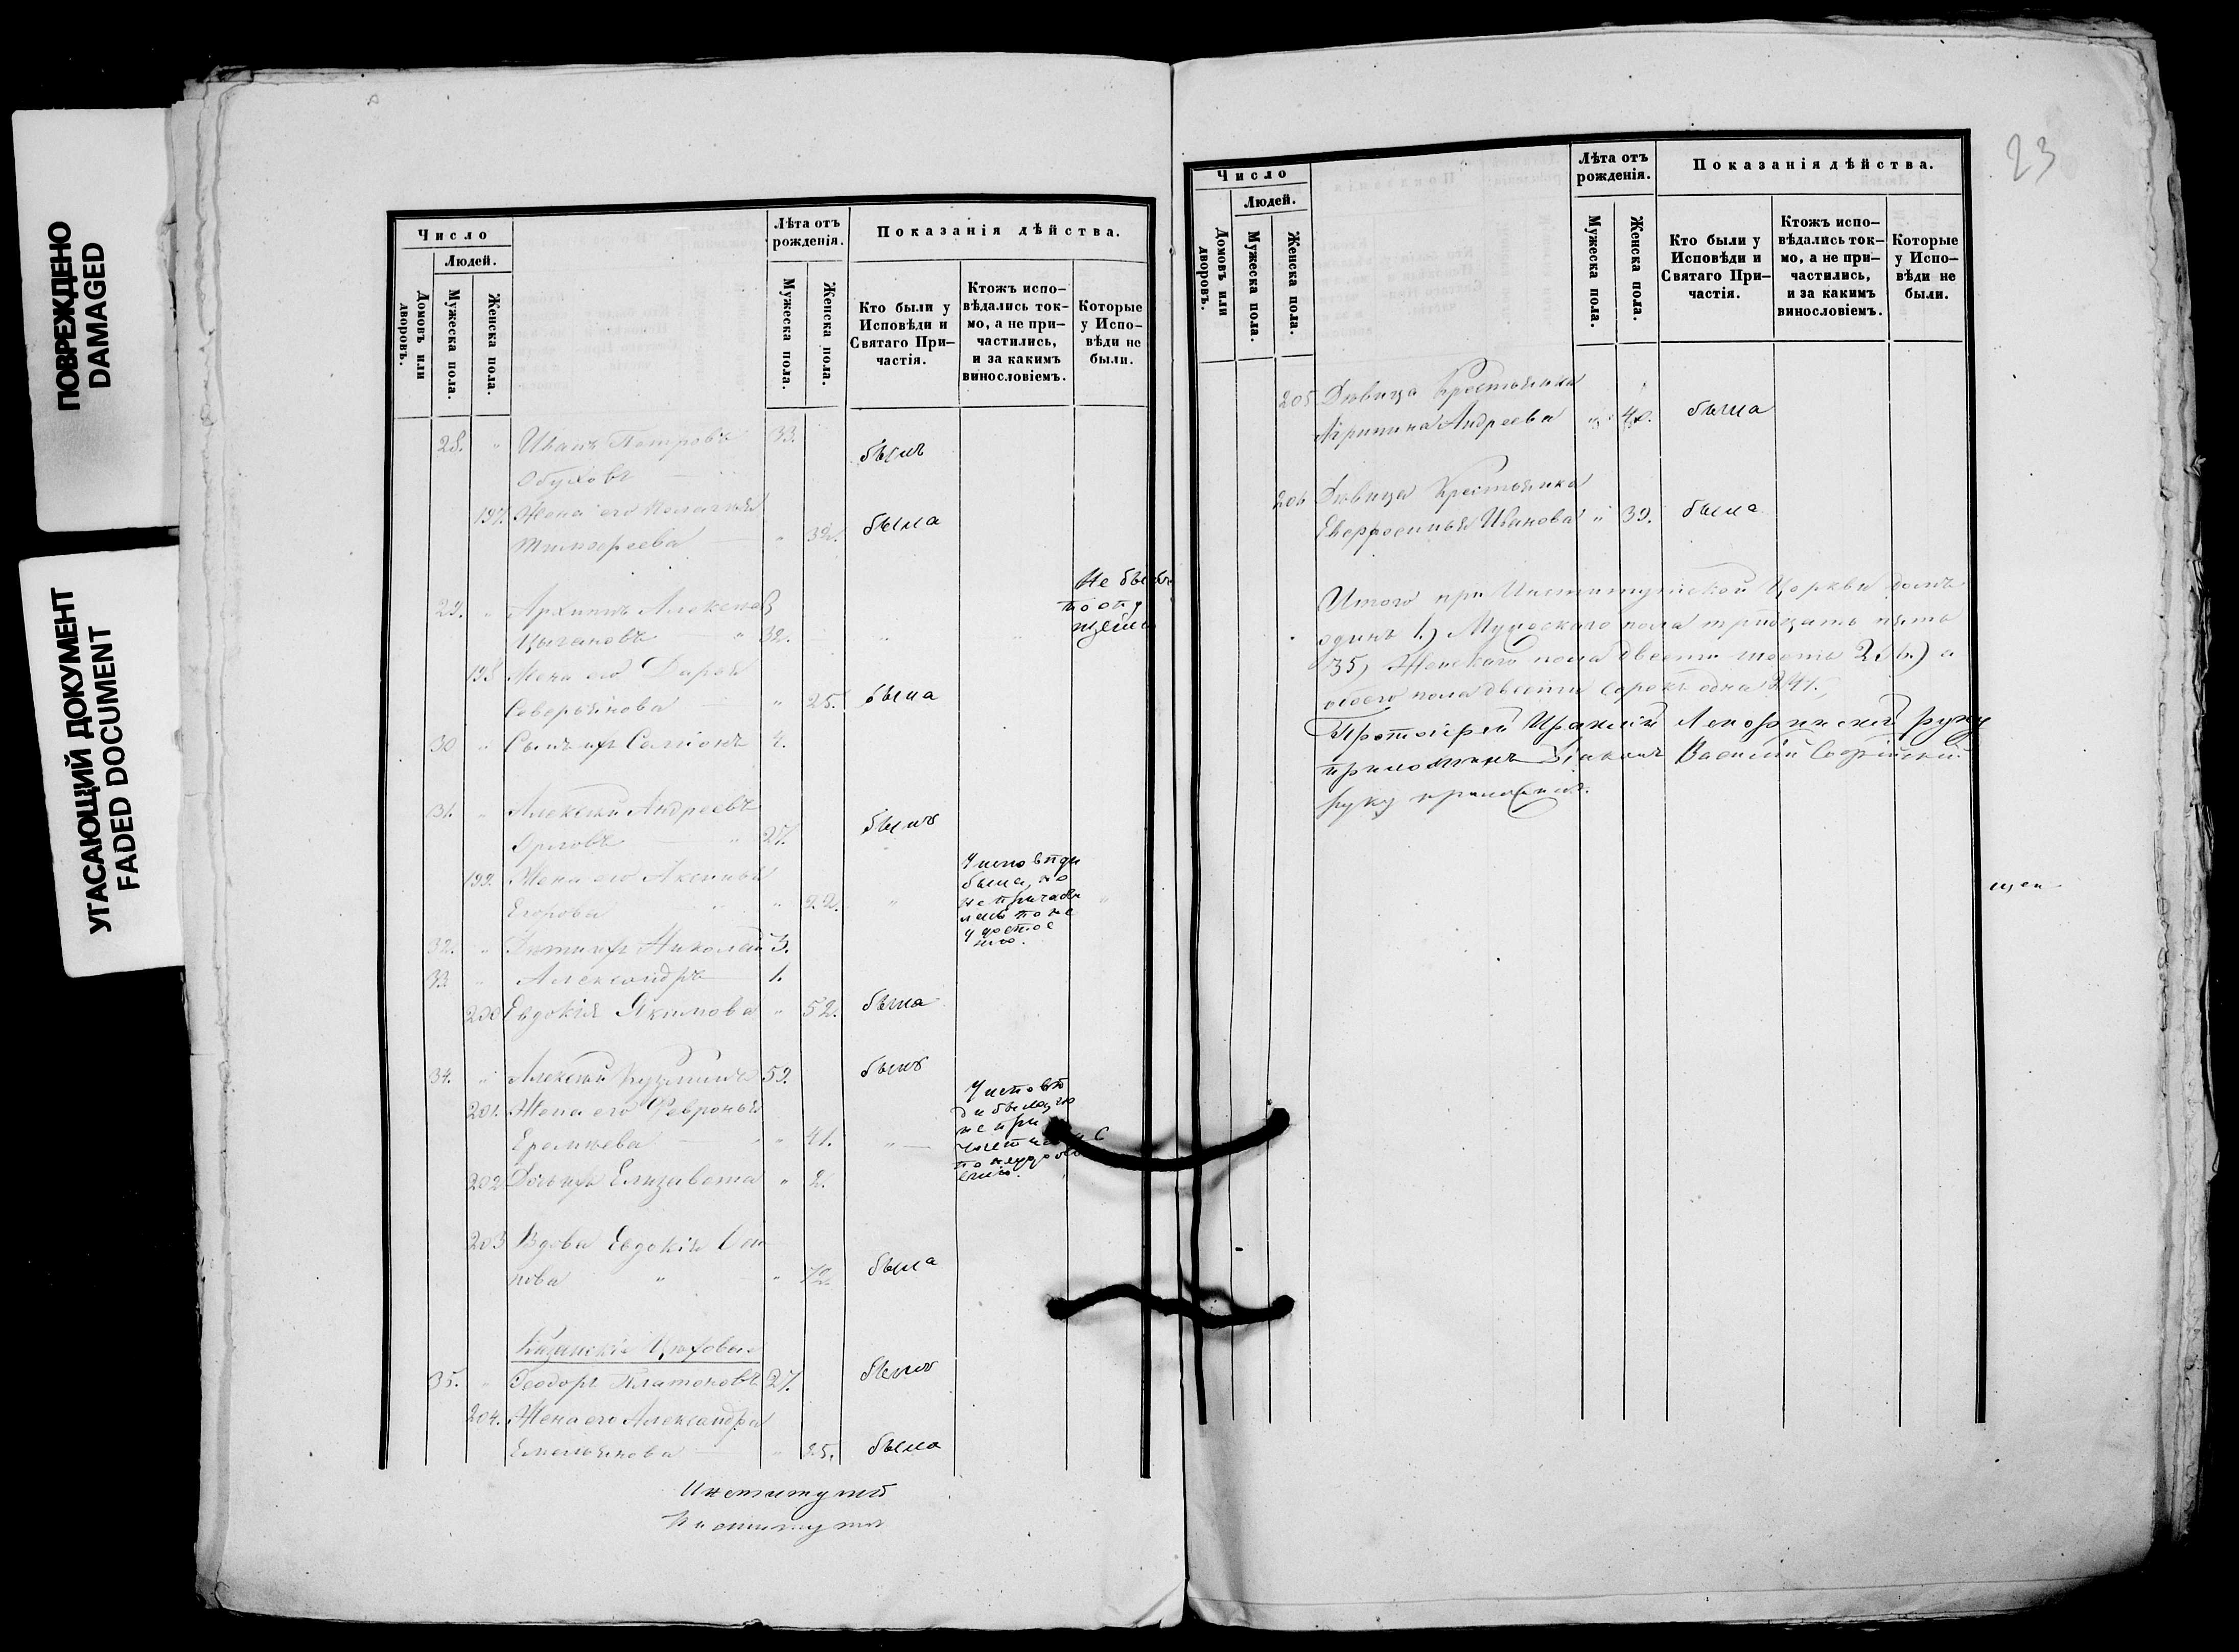 ПОВРЕЖДЕНО
DAMAGED
УГАСАЮЩИЙ ДОКУМЕНТ
FADED DOCUMENT
Число
Людей.
Домовъ или дворовъ.
Мужеска пола.
Женска пола.
Лѣта отъ рожденія.
Мужеска пола.
Женска пола.
Показанія дѣйства.
Кто были у Исповѣди и Святаго При-частія.
Ктожъ испо-вѣдались ток-мо, а не при-частились, и за какимъ винословіемъ.
Которые у Испо-вѣди не были.
28. " Иванъ Петровъ 33.
Обуховъ былъ
197. Жена его Пелагія
Тимофеева " 32. была
29. " Архипъ Алексѣев
Цыгановъ " 32. " " Не былъ по опущенію
198. Жена его Дарья
Северьянова " 25. была
30 " Сынъ ихъ Самсонъ 4.
31. " Алексѣй Андреевъ
Орловъ " 27. былъ
199. Жена его Аксинья
Егорова " 22. " У исповѣди была, но не причастилась по не "
32. " Дѣти ихъ Николай 3.
33. " Александръ 1.
200 Евдокія Якимова " 52. была
34. " Алексѣй Кузминъ 59. былъ
201. Жена его Февронья
Еремѣева " 41. " У исповѣди была, но не при
202 Дочь ихъ Елизавета " 2.
203 Вдова Евдокія
нова " " 72. была
Цеховые
35. " Феодоръ Платоновъ 27. былъ
204. Жена его Александра
Емельянова " 25. была
Институтъ
Института
23
Число
Людей.
Домовъ или дворовъ.
Мужеска пола.
Женска пола.
Лѣта отъ рожденія.
Мужеска пола.
Женска пола.
Показанія дѣйства.
Кто были у Исповѣди и Святаго При-частія.
Ктожъ испо-вѣдались ток-мо, а не при-частились, и за какимъ винословіемъ.
Которые у Испо-вѣди не были.
205 Дѣвица Крестьянка
Агрипина Андреева " 40. была
206 Дѣвица Крестьянка
Евфросинья Иванова " 39. была
Итого при Институтской Церкви домъ
одинъ 1.) Мужескаго пола тридцать пять
35) Женскаго пола двести шесть 206.) а
обоего пола двести сорокъ одна 241.
Протоіерей Ираклій руку
приложилъ Діаконъ Василій Софійскій
руку приложилъ.